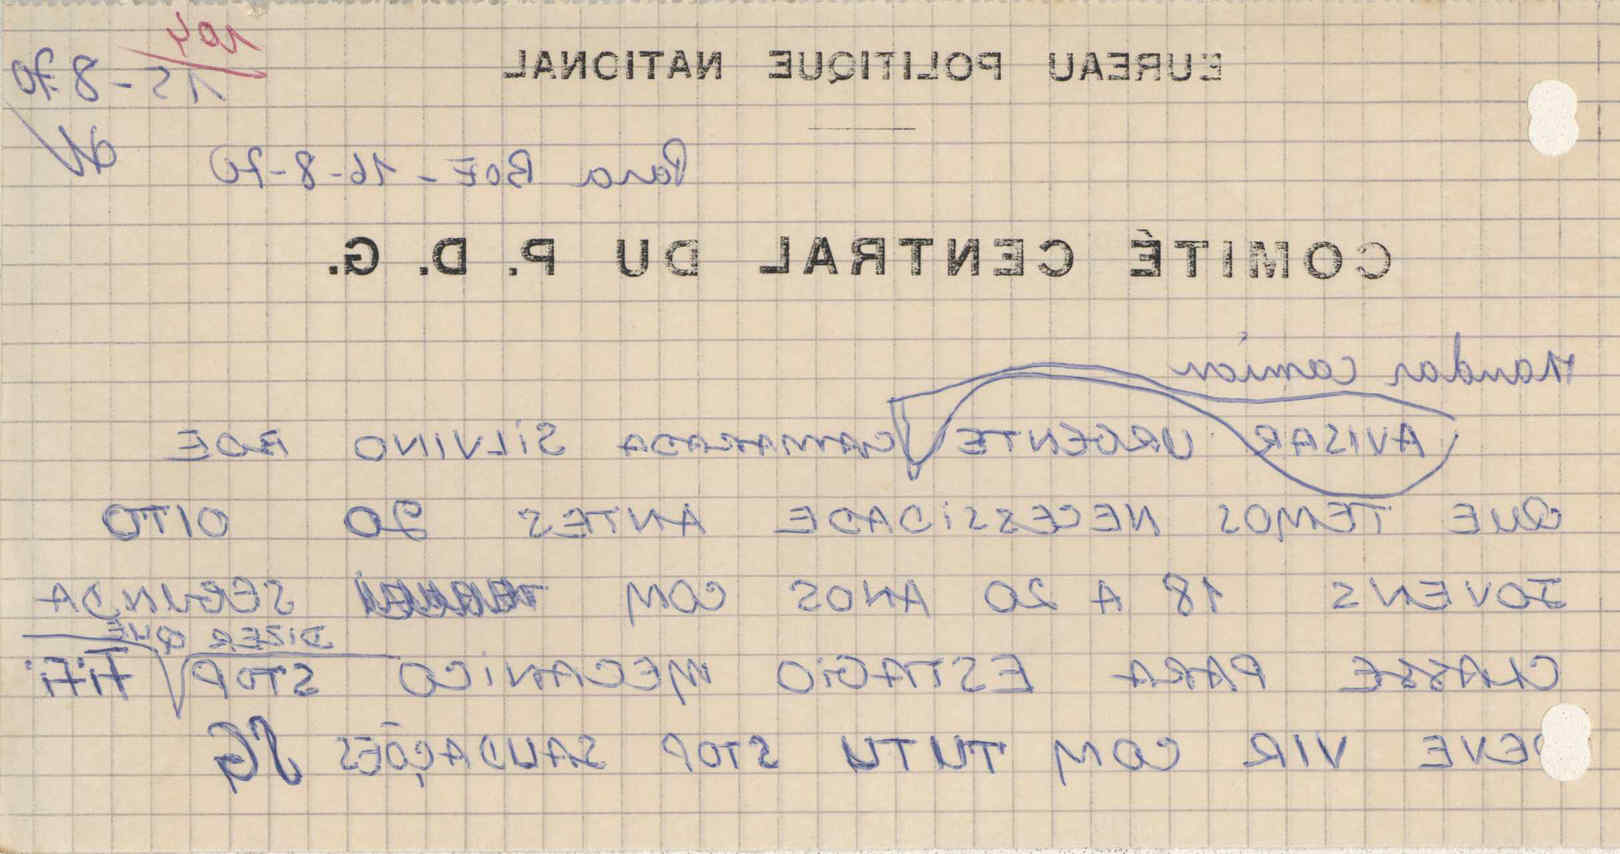 BUREAU POLITIQUE NATIONAL
104
15-8-70
Para BOE - 16-8-70
COMITÉ CENTRAL DU P. D. G.
Mandar camion
AVISAR URGENTE CAMARADA SILVINO BOE
QUE TEMOS NECESSIDADE ANTES OITO
JOVENS 18 A 20 ANOS COM SEGUNDA
DIZER QUE
CLASSE PARA ESTAGIO MECANICO STOP FiFi
DEVE VIR COM TUTU STOP SAUDAÇÕES